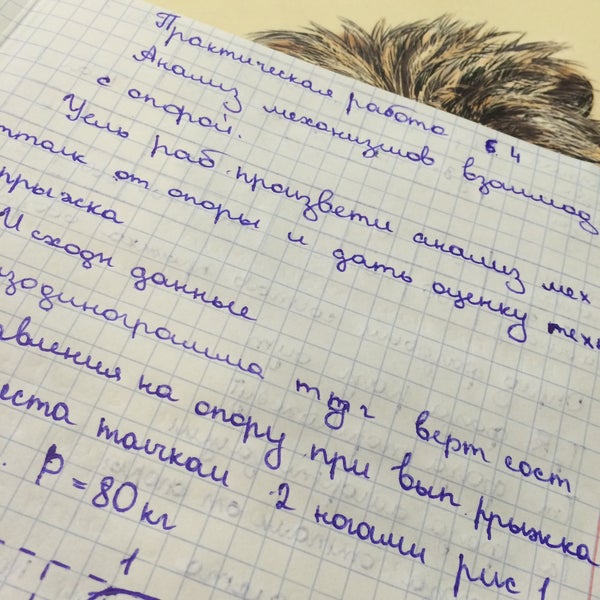 Практическая работа 4
Анализ механизмов взаимод
с опорой.
Цель раб. произвести анализ мех
отталк от опоры и дать оценку техн
прыжка
Исходн данные
верт сост
авления на опору при вып. прыжка
еста толчком 2 ногами рис 1
P = 80 кг
1